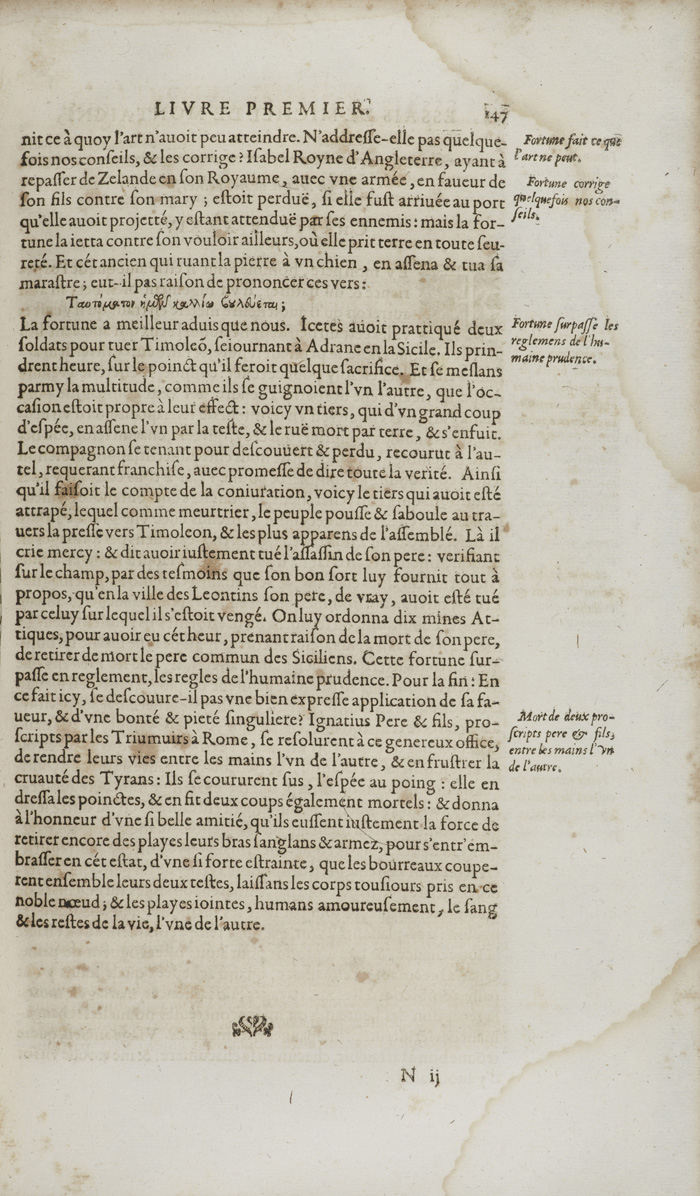 LIVRE PREMIER. 147
nit ce à quoy l'art n'auoit peu atteindre. N'addresse-elle pas quelque-
fois nos conseils, & les corrige? Isabel Royne d'Angleterre, ayant à
repasser de Zelande en son Royaume, auec vne armée, en faueur de
son fils contre son mary; estoit perduë, si elle fust arriuée au port
qu'elle auoit projetté, y estant attenduë par ses ennemis: mais la for-
tune la ietta contre son vouloir ailleurs, où elle prit terre en toute seu-
reté. Et cét ancien qui ruant la pierre à vn chien, en assena & tua sa
marastre; eut-il pas raison de prononcer ces vers:
Ταυτόματον ἡμῶν καλλίω βουλεύεται;
La fortune a meilleur aduis que nous. Icetes auoit prattiqué deux
soldats pour tuer Timoleõ, seiournant à Adrane en la Sicile. Ils prin-
drent heure, sur le poinct qu'il feroit quelque sacrifice. Et se meslans
parmy la multitude, comme ils se guignoient l'vn l'autre, que l'oc-
casion estoit propre à leur effect: voicy vn tiers, qui d'vn grand coup
d'espée, en assene l'vn par la teste, & le ruë mort par terre, & s'enfuit.
Le compagnon se tenant pour descouuert & perdu, recourut à l'au-
tel, requerant franchise, auec promesse de dire toute la verité. Ainsi
qu'il faisoit le compte de la coniuration, voicy le tiers qui auoit esté
attrapé, lequel comme meurtrier, le peuple pousse & saboule au tra-
uers la presse vers Timoleon, & les plus apparens de l'assemblé. Là il
crie mercy: & dit auoir iustement tué l'assassin de son pere: verifiant
sur le champ, par des tesmoins que son bon sort luy fournit tout à
propos, qu'en la ville des Leontins son pere, de vray, auoit esté tué
par celuy sur lequel il s'estoit vengé. On luy ordonna dix mines At-
tiques, pour auoir eu cét heur, prenant raison de la mort de son pere,
de retirer de mort le pere commun des Siciliens. Cette fortune sur-
passe en reglement, les regles de l'humaine prudence. Pour la fin: En
ce fait icy, se descouure-il pas vne bien expresse application de sa fa-
ueur, & d'vne bonté & pieté singuliere? Ignatius Pere & fils, pro-
scripts par les Triumuirs à Rome, se resolurent à ce genereux office,
de rendre leurs vies entre les mains l'vn de l'autre, & en frustrer la
cruauté des Tyrans: Ils se coururent sus, l'espée au poing: elle en
dressa les poinctes, & en fit deux coups également mortels: & donna
à l'honneur d'vne si belle amitié, qu'ils eussent iustement la force de
retirer encore des playes leurs bras sanglans & armez, pour s'entr'em-
brasser en cét estat, d'vne si forte estrainte, que les bourreaux coupe-
rent ensemble leurs deux testes, laissans les corps tousiours pris en ce
noble nœud; & les playes iointes, humans amoureusement, le sang
& les restes de la vie, l'vne de l'autre.
Fortune fait ce que
l'art ne peut.
Fortune corrige
quelquefois nos con-
seils.
Fortune surpasse les
reglemens de l'hu-
maine prudence.
Mort de deux pro-
scripts pere & fils,
entre les mains l'vn
de l'autre.
N ij